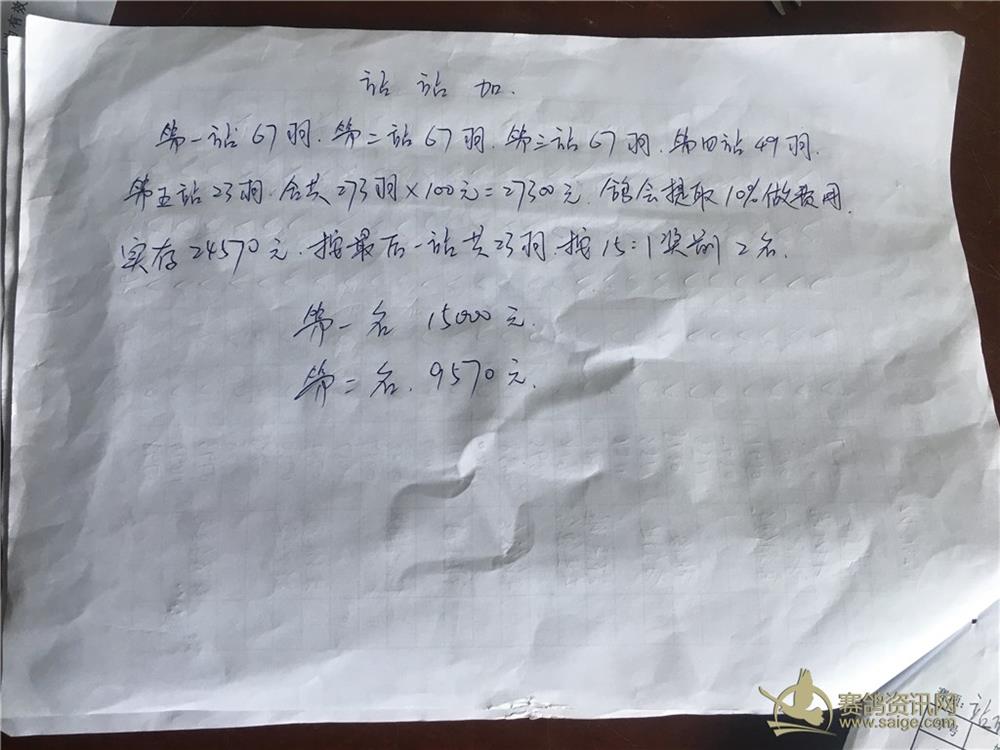 站站加.
第一站67羽.第二站67羽.第三站67羽.第四站49羽.
第五站23羽.合共273羽×100元=27300元.鸽会提取10%做费用.
实存24570元.按最后一站共23羽.按15:1奖前2名.
第一名 15000元.
第二名.9570元.
赛鸽资讯网
www.saige.com
站